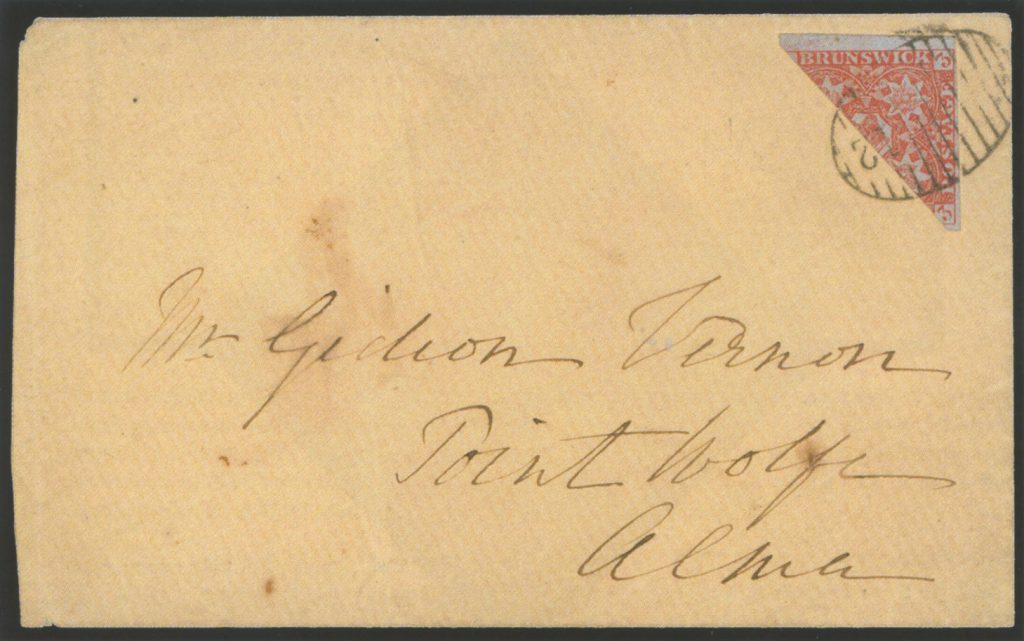 BRUNSWICK
POSTAGE
3
3
Mr Gideon Vernon
Point Wolfe
Alma